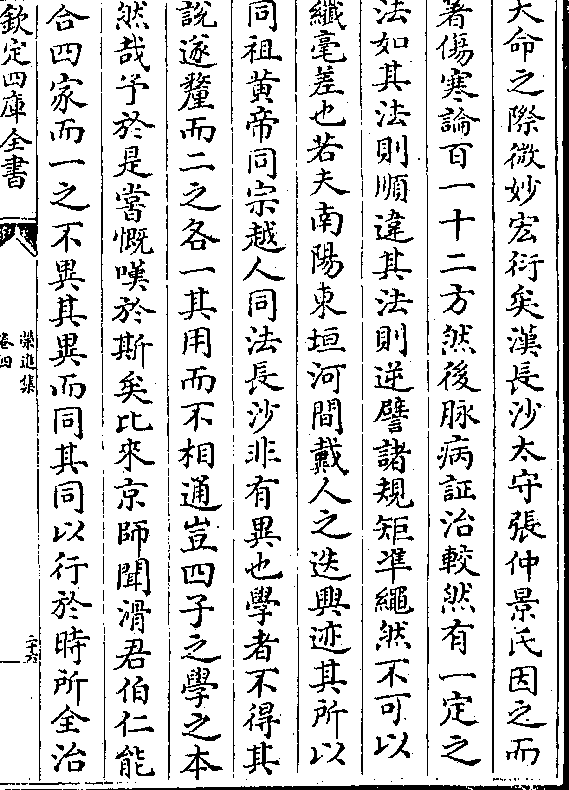 大命之際微妙宏衍矣漢長沙太守張仲景氏因之而
著傷寒論百一十二方然後脉病証治較然有一定之
法如其法則順違其法則逆譬諸規矩凖繩然不可以
纎毫差也若夫南陽東垣河間戴人之迭興迹其所以
同祖黄帝同宗越人同法長沙非有異也學者不得其
說遂釐而二之各一其用而不相通豈四子之學之本
然哉予於是嘗慨嘆於斯矣比來京師聞滑君伯仁能
合四家而一之不異其異而同其同以行於時所全治
欽定四庫全書
榮進集
卷四
二十六